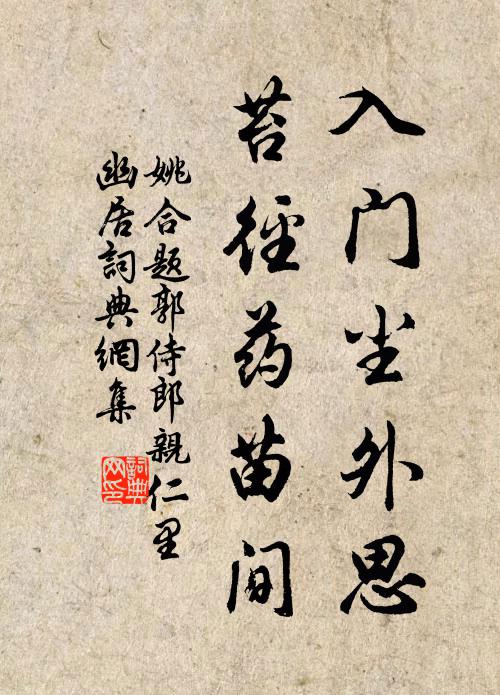 入门尘外思
苔径药苗间
姚合题郭侍郎親仁里
幽居詞典網集
詞典网印